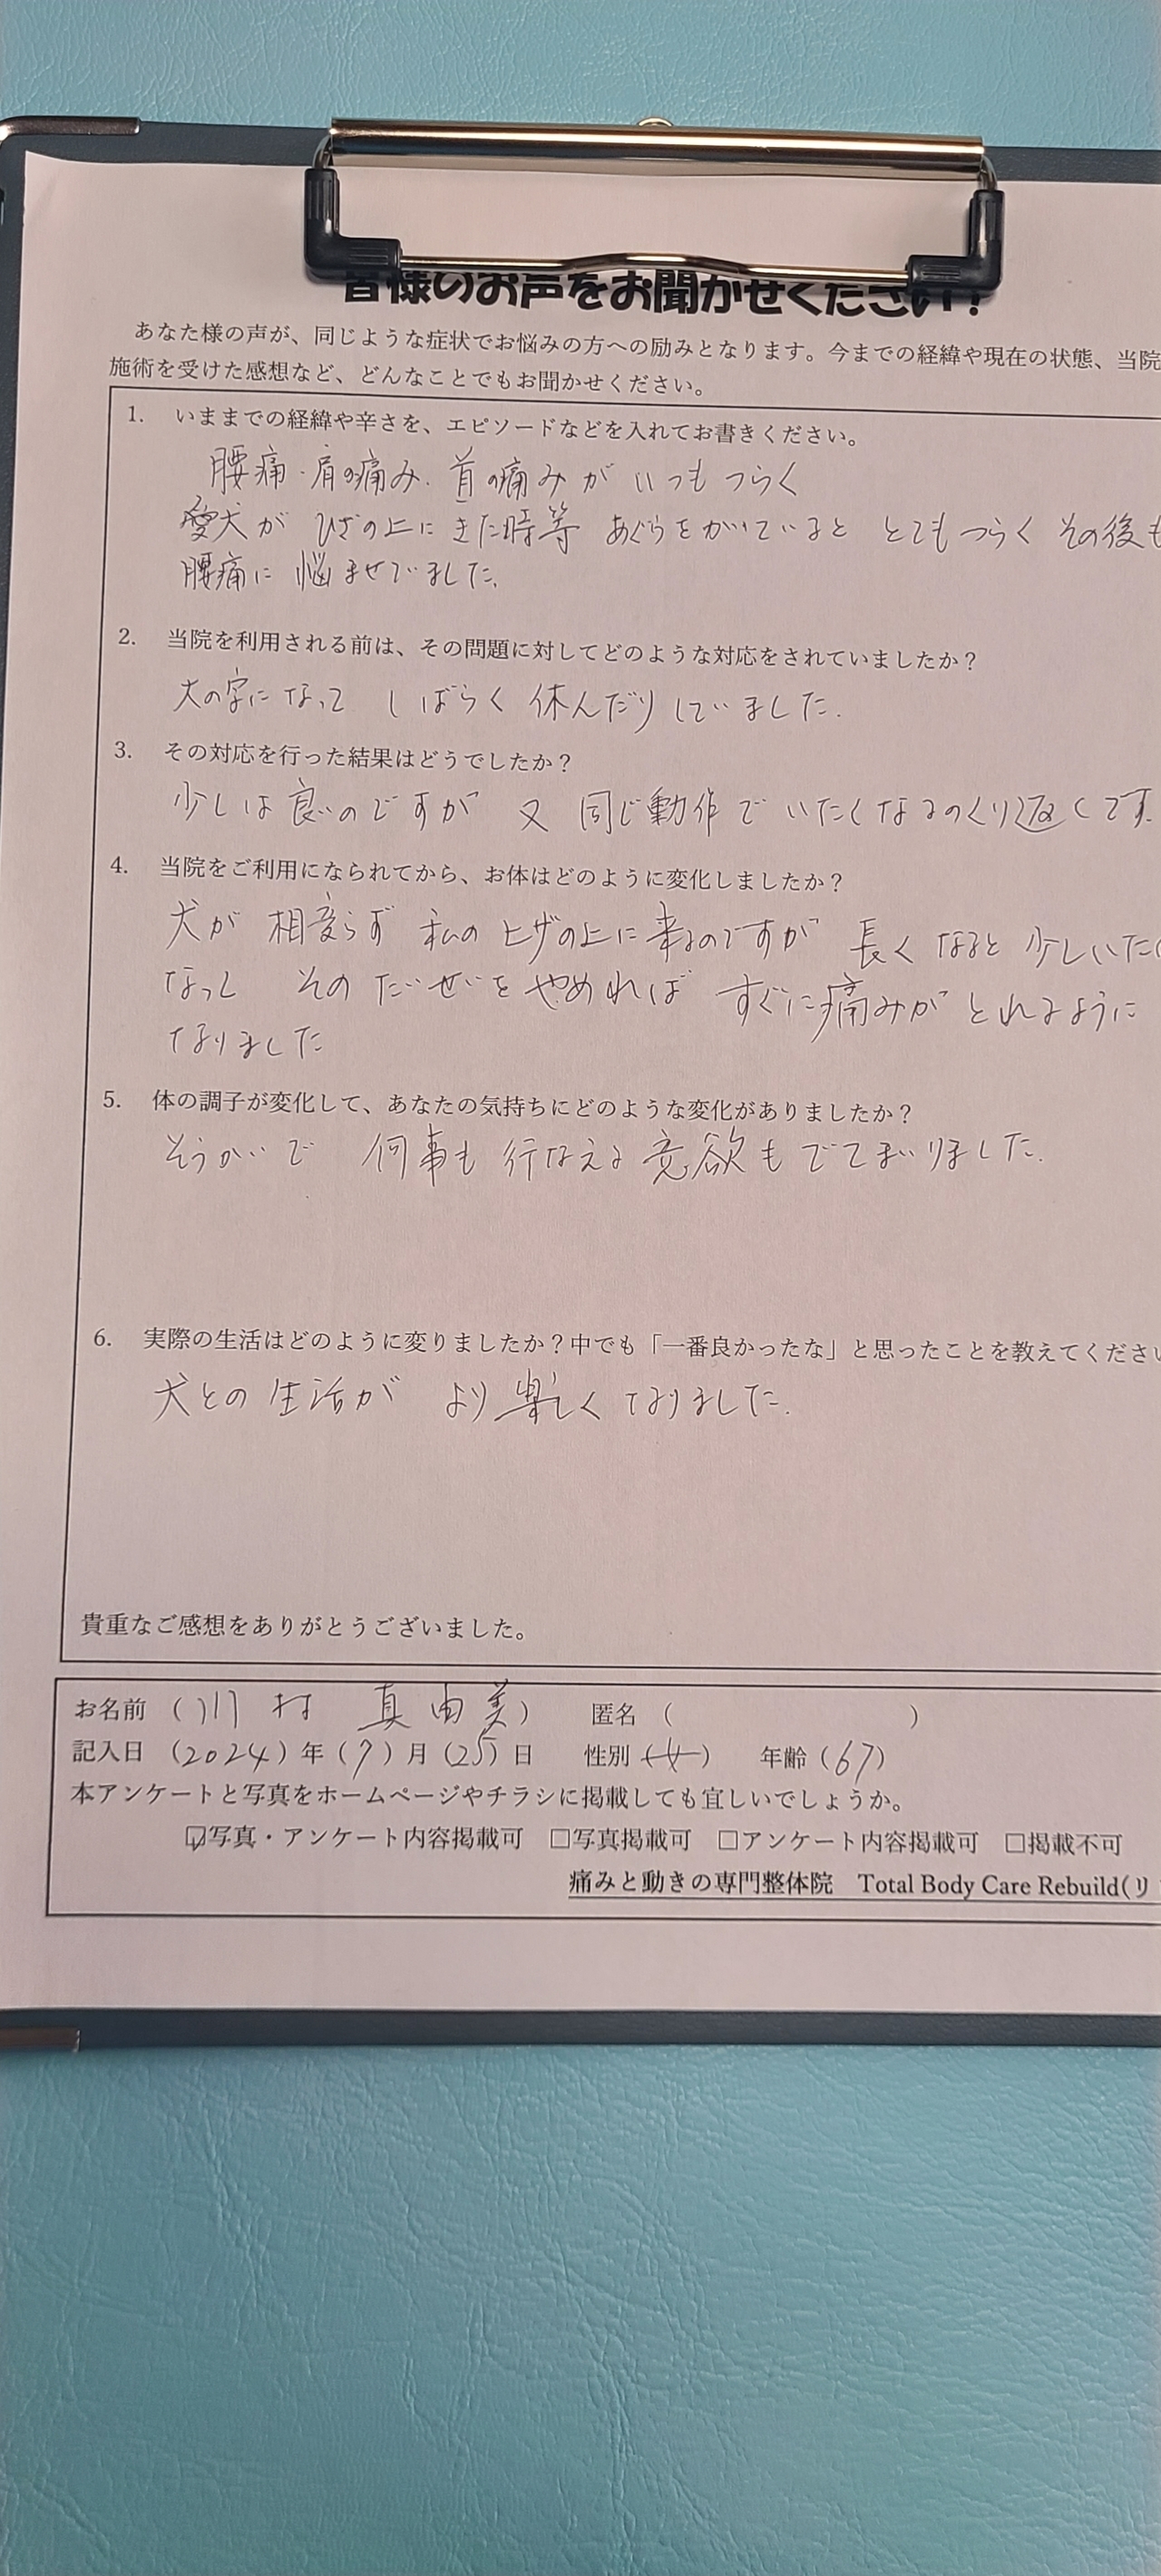 皆様のお声をお聞かせください！
あなた様の声が、同じような症状でお悩みの方への励みとなります。今までの経緯や現在の状態、当院
施術を受けた感想など、どんなことでもお聞かせください。
1. いままでの経緯や辛さを、エピソードなどを入れてお書きください。
腰痛・肩の痛み・首の痛みがいつもつらく
愛犬がひざの上にきた時等 あぐらをかいていると とてもつらく その後も
腰痛に悩ませれてました。
2. 当院を利用される前は、その問題に対してどのような対応をされていましたか？
大の字になって しばらく休んだりしていました。
3. その対応を行った結果はどうでしたか？
少しは良いのですが 又 同じ動作でいたくなるのくり返しです。
4. 当院をご利用になられてから、お体はどのように変化しましたか？
犬が相変らず 私のヒザの上に来るのですが 長くなると少しいたく
なって そのたいせいをやめれば すぐに痛みがとれるように
なりました
5. 体の調子が変化して、あなたの気持ちにどのような変化がありましたか？
そうかいで 何事も行なえる意欲もでてまいりました。
6. 実際の生活はどのように変りましたか？中でも「一番良かったな」と思ったことを教えてくださ
犬との生活が より楽しくなりました。
貴重なご感想をありがとうございました。
お名前 （川村 真由美） 匿名 （ ）
記入日 （2024）年（7）月（25）日 性別（女） 年齢（67）
本アンケートと写真をホームページやチラシに掲載しても宜しいでしょうか。
☑写真・アンケート内容掲載可 □写真掲載可 □アンケート内容掲載可 □掲載不可
痛みと動きの専門整体院 Total Body Care Rebuild(リ